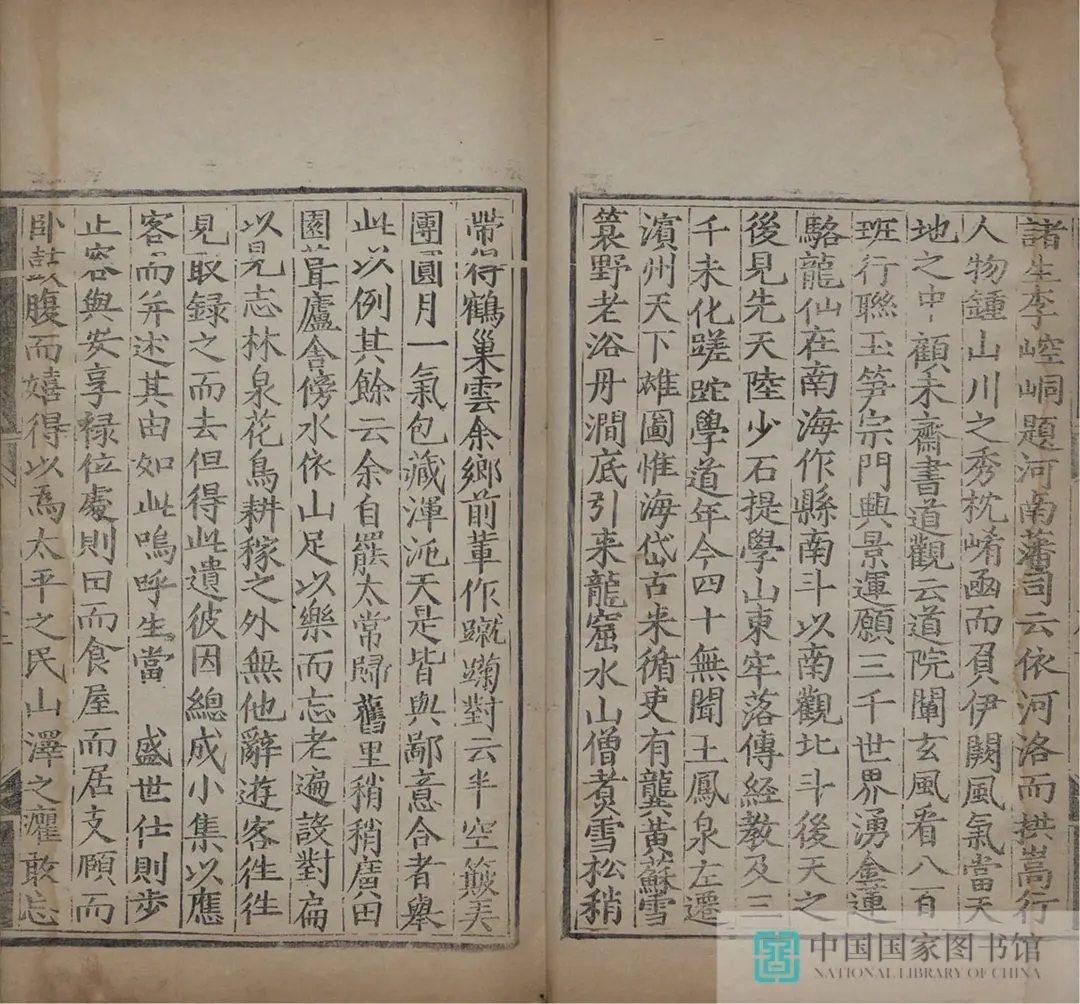 諸生李崆峒題河南藩司云依河洛而拱嵩行
人物鍾山川之秀枕崤函而負伊闕風氣當天
地之中顧未齋書道觀云道院闡玄風看八百
班行聯玉笋宗門興景運願三千世界湧金蓮
駱龍仙在南海作縣南斗以南觀北斗後天之
後見先天陸少石提學山東牢落傳經教及三
千未化蹉跎學道年今四十無聞王鳳泉左遷
濱州天下雄圖惟海岱古来循吏有龔黄蘇雪
蓑野老浴丹澗底引来龍窟水山僧煮雪松稍
帶得鶴巢雲余鄉前輩作蹴踘對云半空簸弄
團圓月一氣包藏渾沌天是皆與鄙意合者舉
此以例其餘云余自罷太常歸舊里稍稍廣田
園葺廬舍傍水依山足以樂而忘老遍設對扁
以見志林泉花鳥耕稼之外無他辭遊客徃徃
見取録之而去但得此遺彼因總成小集以應
客而并述其由如此嗚呼生當 盛世仕則步
止容與安享禄位處則田而食屋而居支頤而
卧鼓腹而嬉得以為太平之民山澤之癯敢忘
中国国家图书馆
NATIONAL LIBRARY OF CHINA